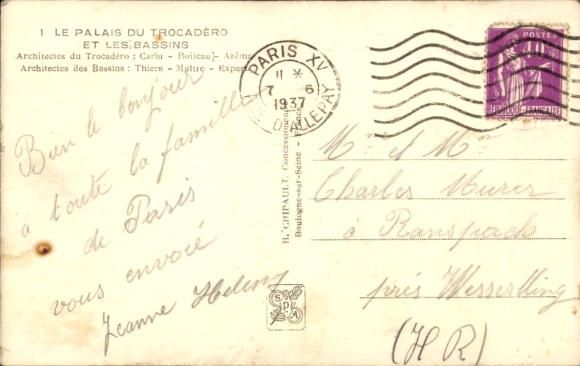 1 LE PALAIS DU TROCADÉRO
ET LES BASSINS
Architectes du Trocadéro : Carlu - Boileau - Azéma
Architectes des Bassins : Thiers - Maître - Expert
Bien le bonjour
a toute la famille
de Paris
vous envoié
Jeanne Helene
H. CHIPAULT, Concessionnaire
Boulogne-sur-Seine - France
SPA
PARIS XV
11 *
7 6
1937
RUE D'ALLERAY
POSTES
REPUBLIQUE FRANÇAISE
Mr et Mme
Charles Murer
à Ranspach
près Wesserling
(H R)